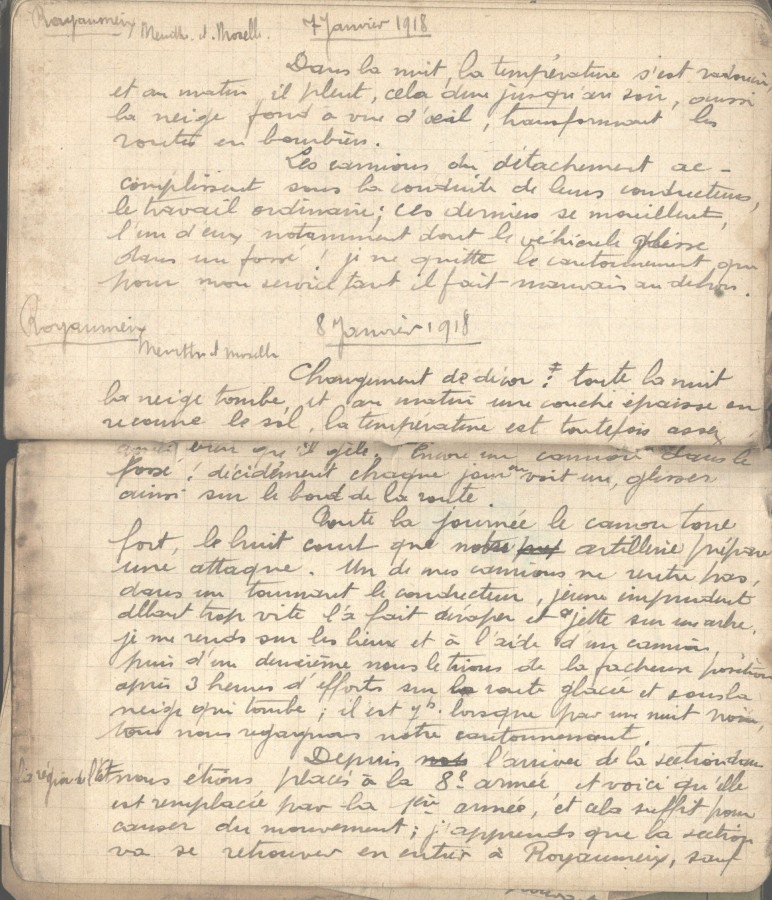 Royaumeix Meurthe et Moselle. 7 Janvier 1918
Dans la nuit, la température s'est radoucie,
et au matin, il pleut, cela dure jusqu'au soir, aussi
la neige fond à vue d'œil, transformant les
routes en bourbiers.
Les camions du détachement ac-
complissent sous la conduite de leurs conducteurs,
le travail ordinaire; ces derniers se mouillent,
l'un d'eux notamment dont le véhicule glisse
dans un fossé! je ne quitte le cantonnement que
pour mon service tant il fait mauvais au dehors.
Royaumeix 8 Janvier 1918
Meurthe et Moselle
Changement de décor: toute la nuit
la neige tombe, et au matin une couche épaisse en
recouvre le sol, la température est toutefois assez
que il gèle. Encore un camion dans le
fossé! décidément chaque jour on voit un, glisser
ainsi sur le bord de la route
Toute la journée le canon tone
fort, le bruit court que notre artillerie prépare
une attaque. Un de mes camions ne rentre pas,
dans un tournant le conducteur, jeune imprudent
allant trop vite l'a fait déraper et jette sur un arbre,
je me rends sur les lieux et à l'aide d'un camion,
puis d'un deuxième nous le tirons de la facheuse position
après 3 heures d'efforts sur la route glacée et sous la
neige qui tombe; il est 9h. lorsque par une nuit noire,
tous nous regagnons notre cantonnement.
Depuis l'arrivée de la section dans
la région de l'Est nous étions placés à la 8e armée, et voici qu'elle
est remplacée par la 1ère armée, et cela suffit pour
causer du mouvement; j'apprends que la section
va se retrouver en entier à Royaumeix, sauf